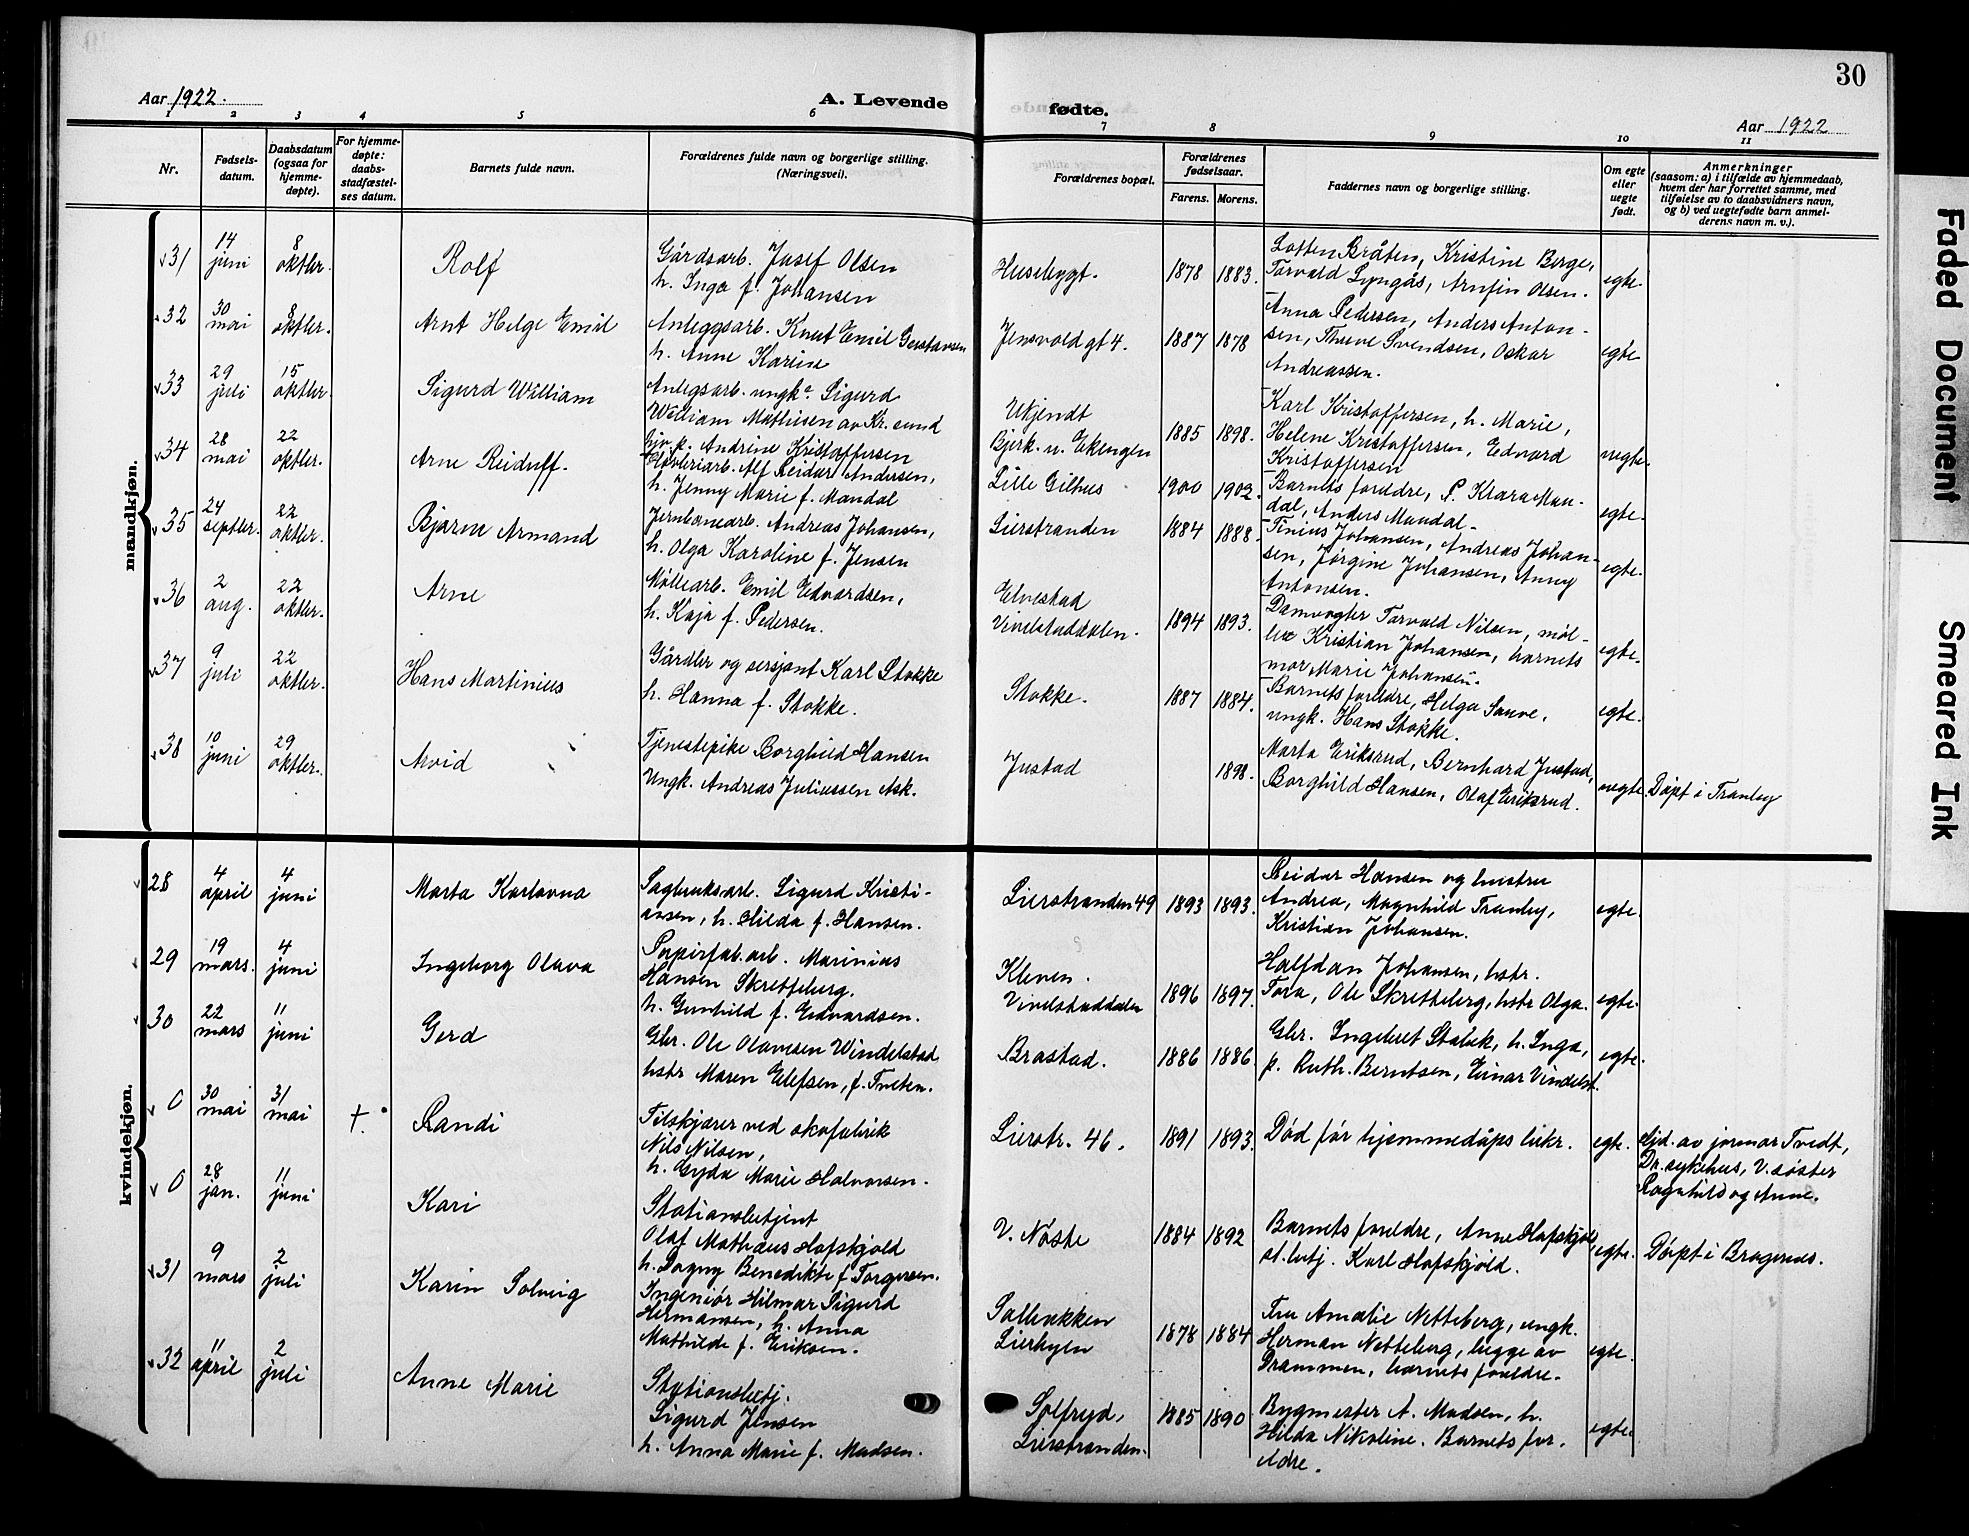 30
Aar 1922.
A. Levende
fødte.
Aar 1922
1 2 3 4 5 6 7 8 9 10 11
Nr.
Fødsels-
datum.
Daabsdatum
(ogsaa for
hjemme-
døpte).
For hjemme-
døpte:
daabs-
stadfæstel-
ses datum.
Barnets fulde navn.
Forældrenes fulde navn og borgerlige stilling.
(Næringsvei).
Forældrenes bopæl.
Forældrenes
fødselsaar.
Farens. Morens.
Faddernes navn og borgerlige stilling.
Om egte
eller
uegte
født.
Anmerkninger
(saasom: a) i tilfælde av hjemmedaab,
hvem der har forrettet samme, med
tilføielse av to daabsvidners navn,
og b) ved uegtefødte barn anmel-
derens navn m. v.).
mandkjøn.
31
14
juni
8
oktbr.
Rolf
Gårdsarb. Josef Olsen
h. Inga f. Johansen
Husebygt.
1878 1883.
Loften Bråten, Kristine Berge,
Torvald Lyngås, Arnfin Olsen.
egte.
32
30
mai
8
oktbr.
Arnt Helge Emil
Anleggsarb. Knut Emil Gustavsen
h. Anne Karine
Jensvoldgt 4.
1887 1878
Anna Pedersen, Anders Anton-
sen, Svendsen, Oskar
Andreassen.
egte
33
29
juli
15
oktbr.
Sigurd William
Anlegsarb. ungk. Sigurd
William Mathisen av Kr. sund
p. Andrine Kristoffersen
Ukjendt
Bjerk. u. Ekengen
1885 1898.
Karl Kristoffersen, h. Marie,
Helene Kristoffersen, Edvard
Kristoffersen
uegte.
34
28
mai
22
oktbr.
Arne Reidulf.
Høvleriarb. Alf Reidar Andersen,
h. Jenny Marie f. Mandal
Lille Gilhus
1900 1902.
Barnets foreldre, P. Klara Man-
dal, Anders Mandal.
egte.
35
24
septbr.
22
oktbr.
Bjarne Armand
Jernbanearb. Andreas Johansen,
h. Olga Karoline f. Jensen
Lierstranden
1884 1888.
Tinius Johansen, Andreas Johan-
sen, Jørgine Johansen, Anny
Antonsen.
egte.
36
2
aug.
22
oktbr.
Arne
Møllearb. Emil Edvardsen,
h. Kaja f. Pedersen.
Elvestad
Vivelstaddalen.
1894 1893.
Damvogter Torvald Nilsen, møl-
ler Kristian Johansen, barnets
mor Marie Johansen.
egte.
37
9
juli
22
oktbr.
Hans Martinius
Gårdbr og sersjant Karl Stokke
h. Hanna f. Stokke.
Stokke.
1887 1884.
Barnets foreldre, Helga Sauve,
ungk. Hans Stokke.
egte.
38
10
juni
29
oktbr.
Arvid
Tjenestepike Borghild Hansen
Ungk. Andreas Juliussen Ask.
Justad
1898.
Marta Eriksrud, Bernhard Justad,
Borghild Hansen, Olaf Eriksrud.
uegte.
Døpt i Tranby
kvindekjøn.
28
4
april
4
juni
Marta Karlovna
Sagbruksarb. Sigurd Kristi-
ansen, h. Hilda f. Hansen.
Lierstranden 49
1893 1893.
Reidar Hansen og hustru
Andrea, Magnhild Tranby,
Kristian Johansen.
egte.
29
19
mars.
4
juni
Ingeborg Olava
Papirfab.arb. Marinius
Hansen Skretteberg.
h. Gunhild f. Edvardsen.
Kleven.
Vivelstaddalen
1896 1897.
Halfdan Johansen, hstr.
Tora, Ole Skretteberg, hstr Olga.
egte.
30
22
mars
11
juni
Gerd
Gbr. Ole Olavesen Windelstad
hstr Maren Elefsen, f. Tveten.
Brastad.
1886 1886
Gbr. Ingebret Stabæk, h. Inga,
p. Ruth. Berntsen, Einar Vindelst.
egte.
0
30
mai
31
mai
†.
Randi
Tilskjærer ved skofabrik
Nils Nilsen,
h. Gyda Marie Halvorsen.
Lierstr. 46.
1891 1893.
Død før hjemmedåps bekr.
egte.
Hjd. av jormor Tvedt,
Dr. sykehus, V. søster
Ragnhild og Anne.
0
28
jan.
11
juni
Kari
Stationsbetjent
Olaf Mathæus Hofskjold
h. Dagny Benedikte f Torgersen.
V. Nøste
1884 1892
Barnets foreldre, Anne Hofskjold,
st.betj. Karl Hofskjold.
egte.
Døpt i Bragernes.
31
9
mars
2
juli
Karin Solveig
Ingeniør Hilmar Sigurd
Hermansen, h. Anna
Mathilde f. Eriksen.
Solbakken
Lierbyen
1878 1884
Fru Amalie Netteberg, ungk.
Herman Netteberg, begge av
Drammen, barnets foreldre.
egte.
32
11
april
2
juli
Anne Marie
Stationsbetj.
Sigurd Jensen
h. Anna Marie f. Madsen.
Solfryd,
Lierstranden.
1885 1890
Bygmester A. Madsen, h.
Hilda Nikoline. Barnets for-
eldre.
egte.
Faded Document
Smeared Ink